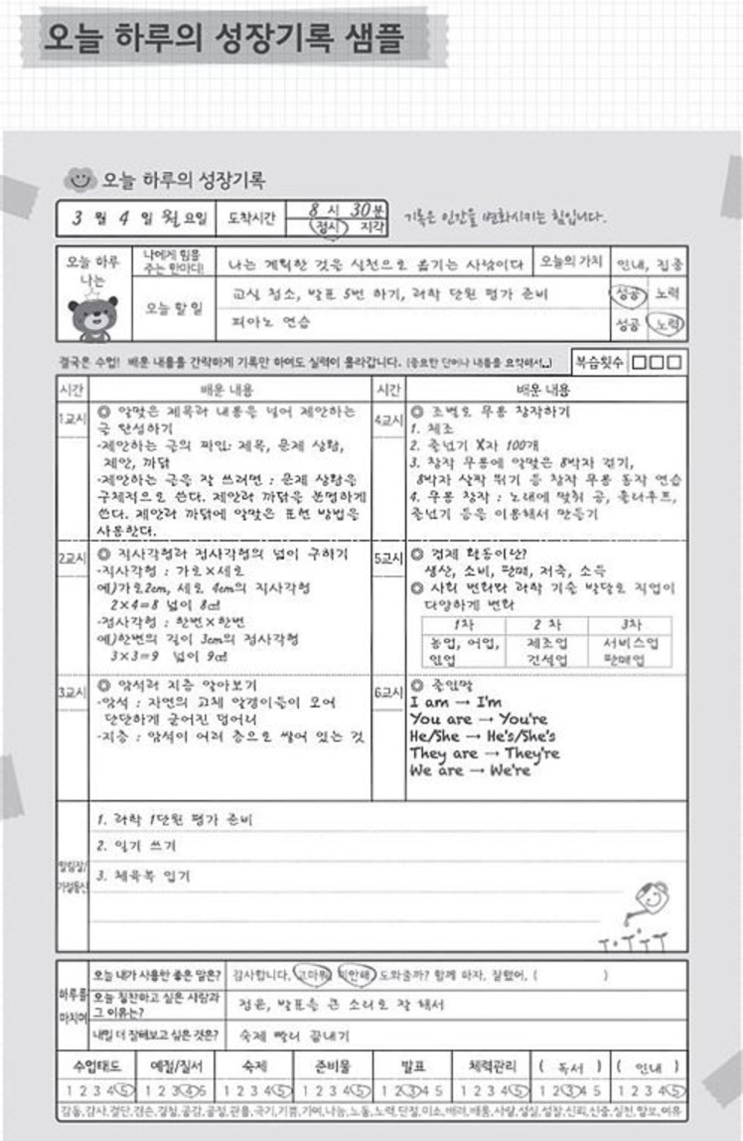 오늘 하루의 성장기록 샘플
오늘 하루의 성장기록
3 월 4 일 월 요일 도착시간 8 시 30 분
정시 지각
기록은 인간을 변화시키는 힘입니다.
오늘 하루 나는
나에게 힘을 주는 한마디! 나는 계획한 것을 실천으로 옮기는 사람이다 오늘의 가치 인내, 집중
오늘 할 일 교실 청소, 발표 5번 하기, 과학 단원 평가 준비 성공 노력
피아노 연습 성공 노력
결국은 수업! 배운 내용을 간략하게 기록만 하여도 실력이 올라갑니다. (중요한 단어나 내용을 요약해서..) 복습횟수 □□□
시간 배운 내용 시간 배운 내용
1교시 ◎ 알맞은 제목과 내용을 넣어 제안하는
글 완성하기
-제안하는 글의 짜임: 제목, 문제 상황,
제안, 까닭
-제안하는 글을 잘 쓰려면 : 문제 상황을
구체적으로 쓴다. 제안과 까닭을 분명하게
쓴다. 제안과 까닭에 알맞은 표현 방법을
사용한다.
4교시 ◎ 조별로 무용 창작하기
1. 체조
2. 줄넘기 X자 100개
3. 창작 무용에 알맞은 8박자 걷기,
8박자 살짝 뛰기 등 창작 무용 동작 연습
4. 무용 창작 : 노래에 맞춰 공, 훌라후프,
줄넘기 등을 이용해서 만들기
2교시 ◎ 직사각형과 정사각형의 넓이 구하기
-직사각형 : 가로×세로
예)가로2cm, 세로 4cm의 직사각형
2×4=8 넓이 8㎠
-정사각형 : 한변×한변
예)한변의 길이 3cm의 정사각형
3×3=9 넓이 9㎠
5교시 ◎ 경제 활동이란?
생산, 소비, 판매, 저축, 소득
◎ 사회 변화와 과학 기술 발달로 직업이
다양하게 변화
1차 2차 3차
농업, 어업, 제조업 서비스업
임업 건설업 판매업
3교시 ◎ 암석과 지층 알아보기
-암석 : 자연의 고체 알갱이들이 모여
단단하게 굳어진 덩어리
-지층 : 암석이 여러 층으로 쌓여 있는 것
6교시 ◎ 줄임말
I am → I'm
You are → You're
He/She → He's/She's
They are → They're
We are → We're
알림장/
가정통신
1. 과학 1단원 평가 준비
2. 일기 쓰기
3. 체육복 입기
하루를
마치며
오늘 내가 사용한 좋은 말은? 감사합니다. 고마워 미안해 도와줄까? 함께 하자. 잘했어. ( )
오늘 칭찬하고 싶은 사람과
그 이유는? 정윤, 발표를 큰 소리로 잘 해서
내일 더 잘해보고 싶은 것은? 숙제 빨리 끝내기
수업태도 예절/질서 숙제 준비물 발표 체력관리 ( 독서 ) ( 인내 )
1 2 3 4 5 1 2 3 4 5 1 2 3 4 5 1 2 3 4 5 1 2 3 4 5 1 2 3 4 5 1 2 3 4 5 1 2 3 4 5
감동,감사,결단,겸손,경청,공감,공정,관용,극기,기쁨,기여,나눔,노동,노력,단정,미소,배려,배움,사랑,성실,성찰,신뢰,신중,실천,양보,여유